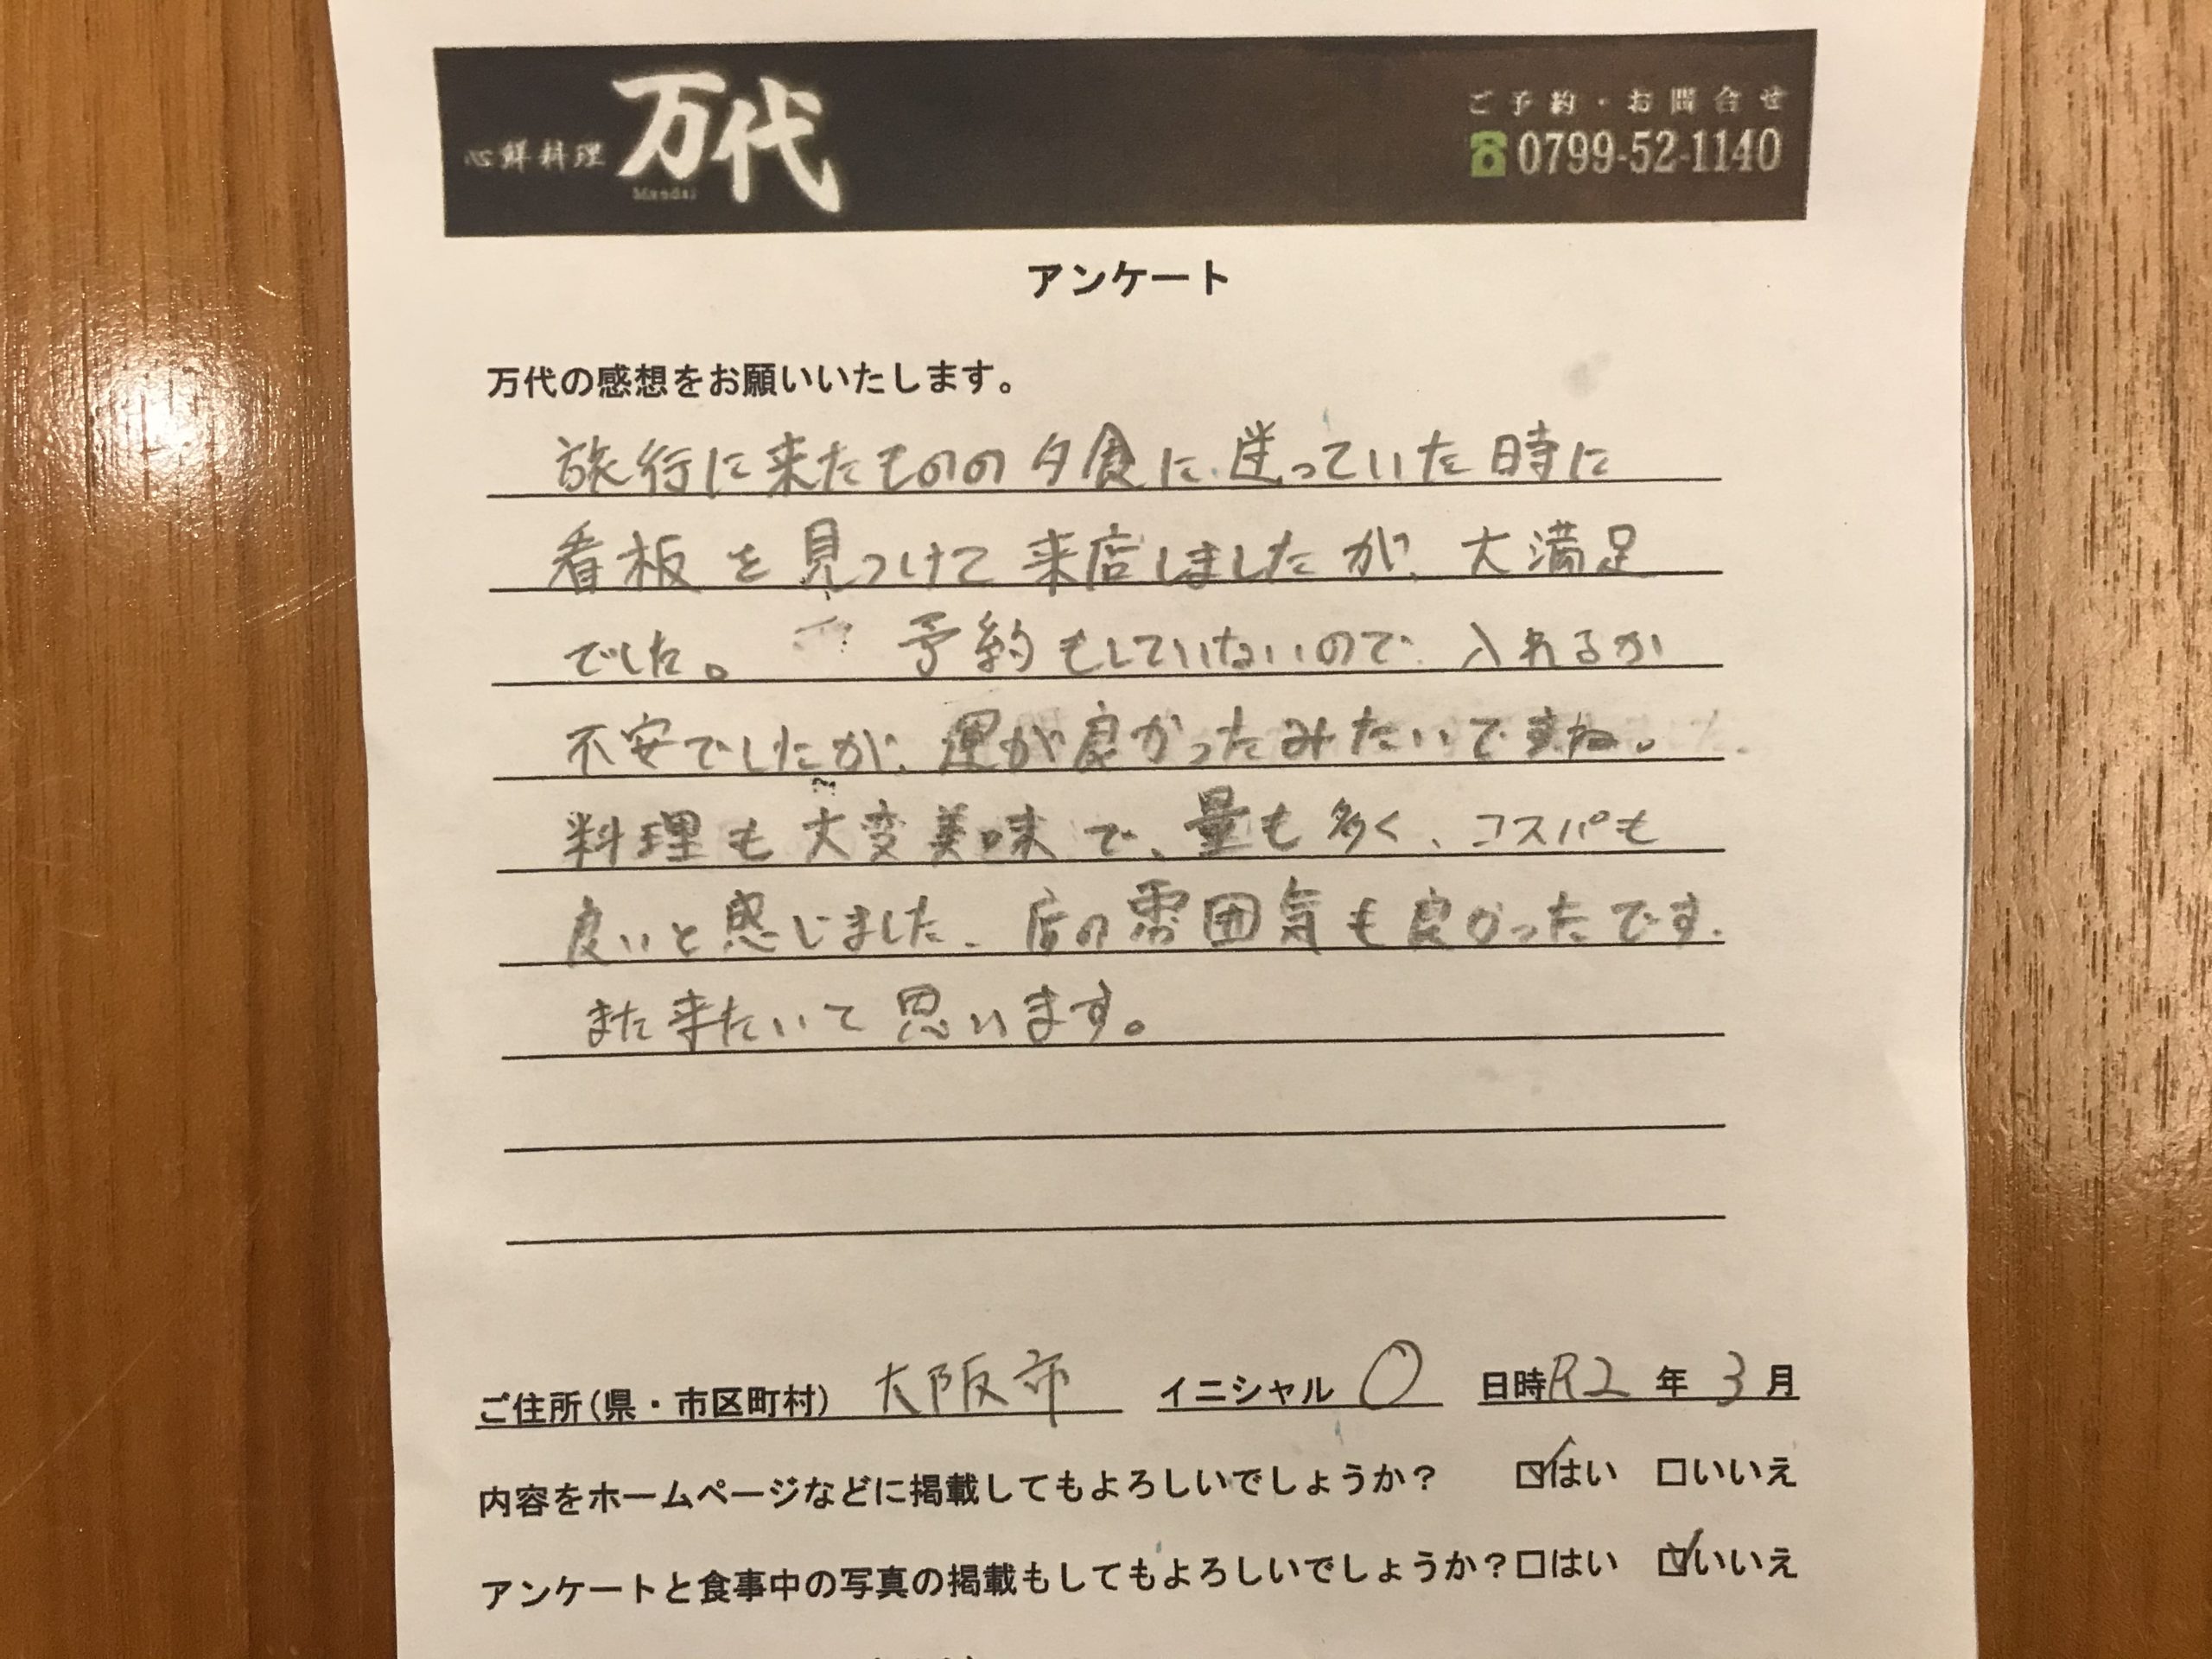 心鮮料理 万代
Mandai
ご予約・お問合せ
0799-52-1140
アンケート
万代の感想をお願いいたします。
旅行に来たものの夕食に迷っていた時に
看板を見つけて来店しましたが、大満足
でした。 予約もしていないので 入れるか
不安でしたが、運が良かったみたいですね。
料理も大変美味で、量も多く、コスパも
良いと感じました。店の雰囲気も良かったです.
また来たいて思います。
ご住所(県・市区町村) 大阪市 イニシャル O 日時R2年 3月
内容をホームページなどに掲載してもよろしいでしょうか? ☑はい □いいえ
アンケートと食事中の写真の掲載もしてもよろしいでしょうか?□はい ☑いいえ